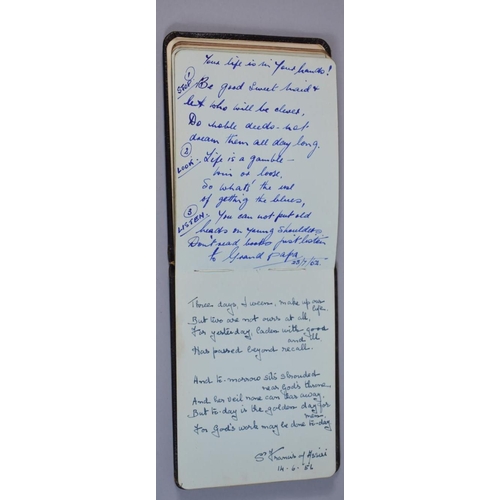 Your life is in Your hands!
① STOP Be good sweet maid &
let who will be clever,
Do noble deeds - not
dream them all day long.
② LOOK. Life is a gamble -
win or loose.
So what's the use
of getting the blues,
③ LISTEN. You can not put old
heads on young shoulders
Don't read books just listen
to Grand Papa
Three days, I ween, make up our life.
But two are not ours at all,
For yesterday, laden with good and ill
Has passed beyond recall.
And to-morrow sits shrouded near God's throne
And her veil none can tear away.
But to-day is the golden day for men.
For God's work may be done to-day
St Francis of Assisi